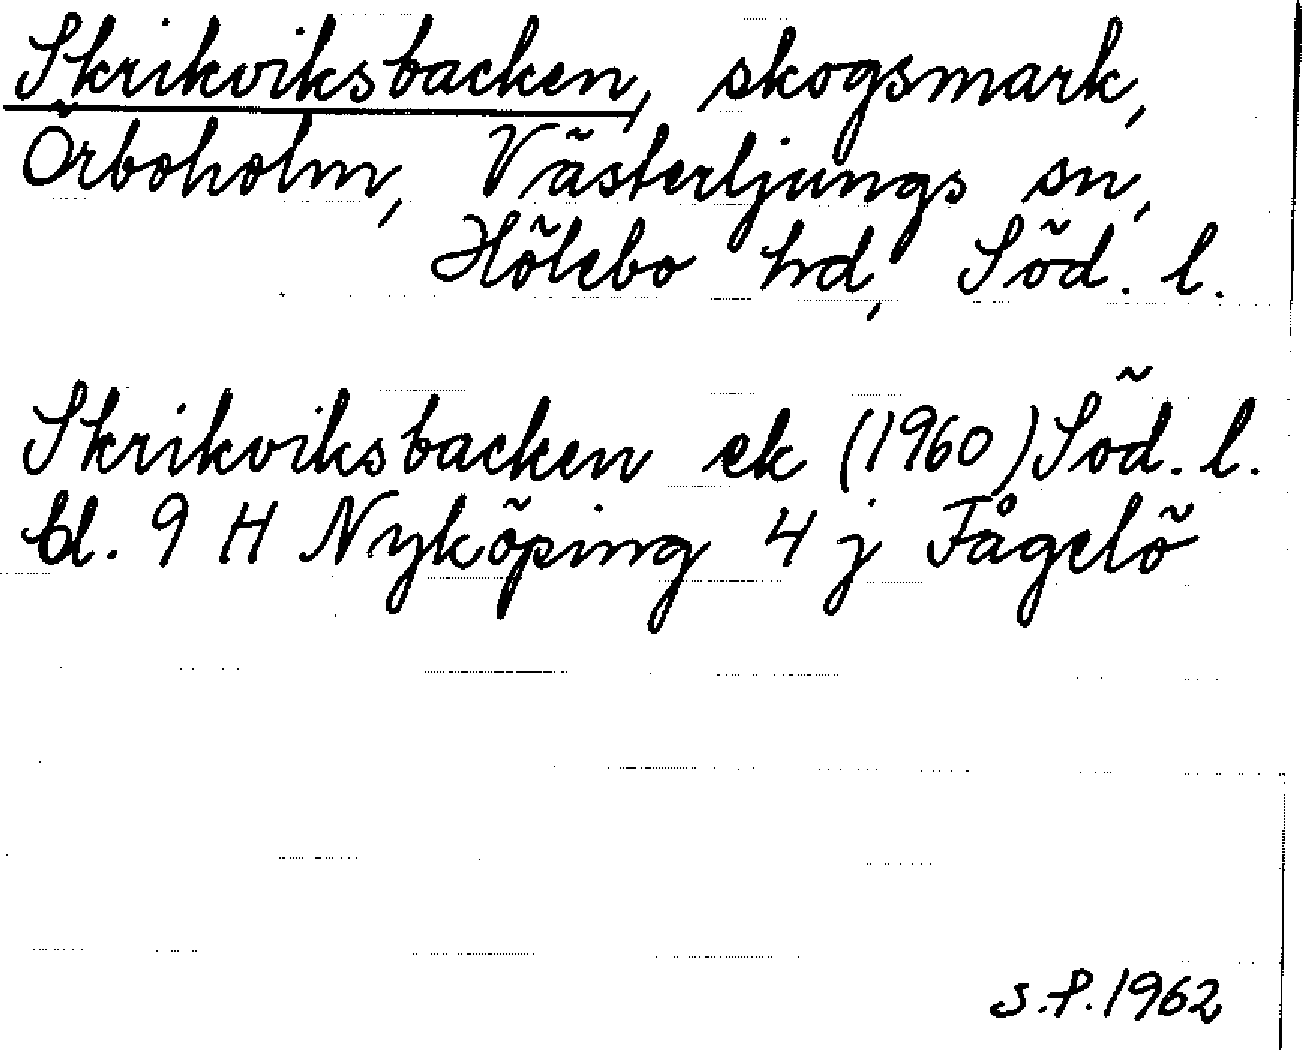 Skrikviksbacken, skogsmark,
Örboholm, Västerljungs sn,
Hölebo hd, Söd. l.
Skrikviksbacken ek (1960) Söd. l.
bl. 9 H Nyköping 4 j Fågelö
S.P. 1962